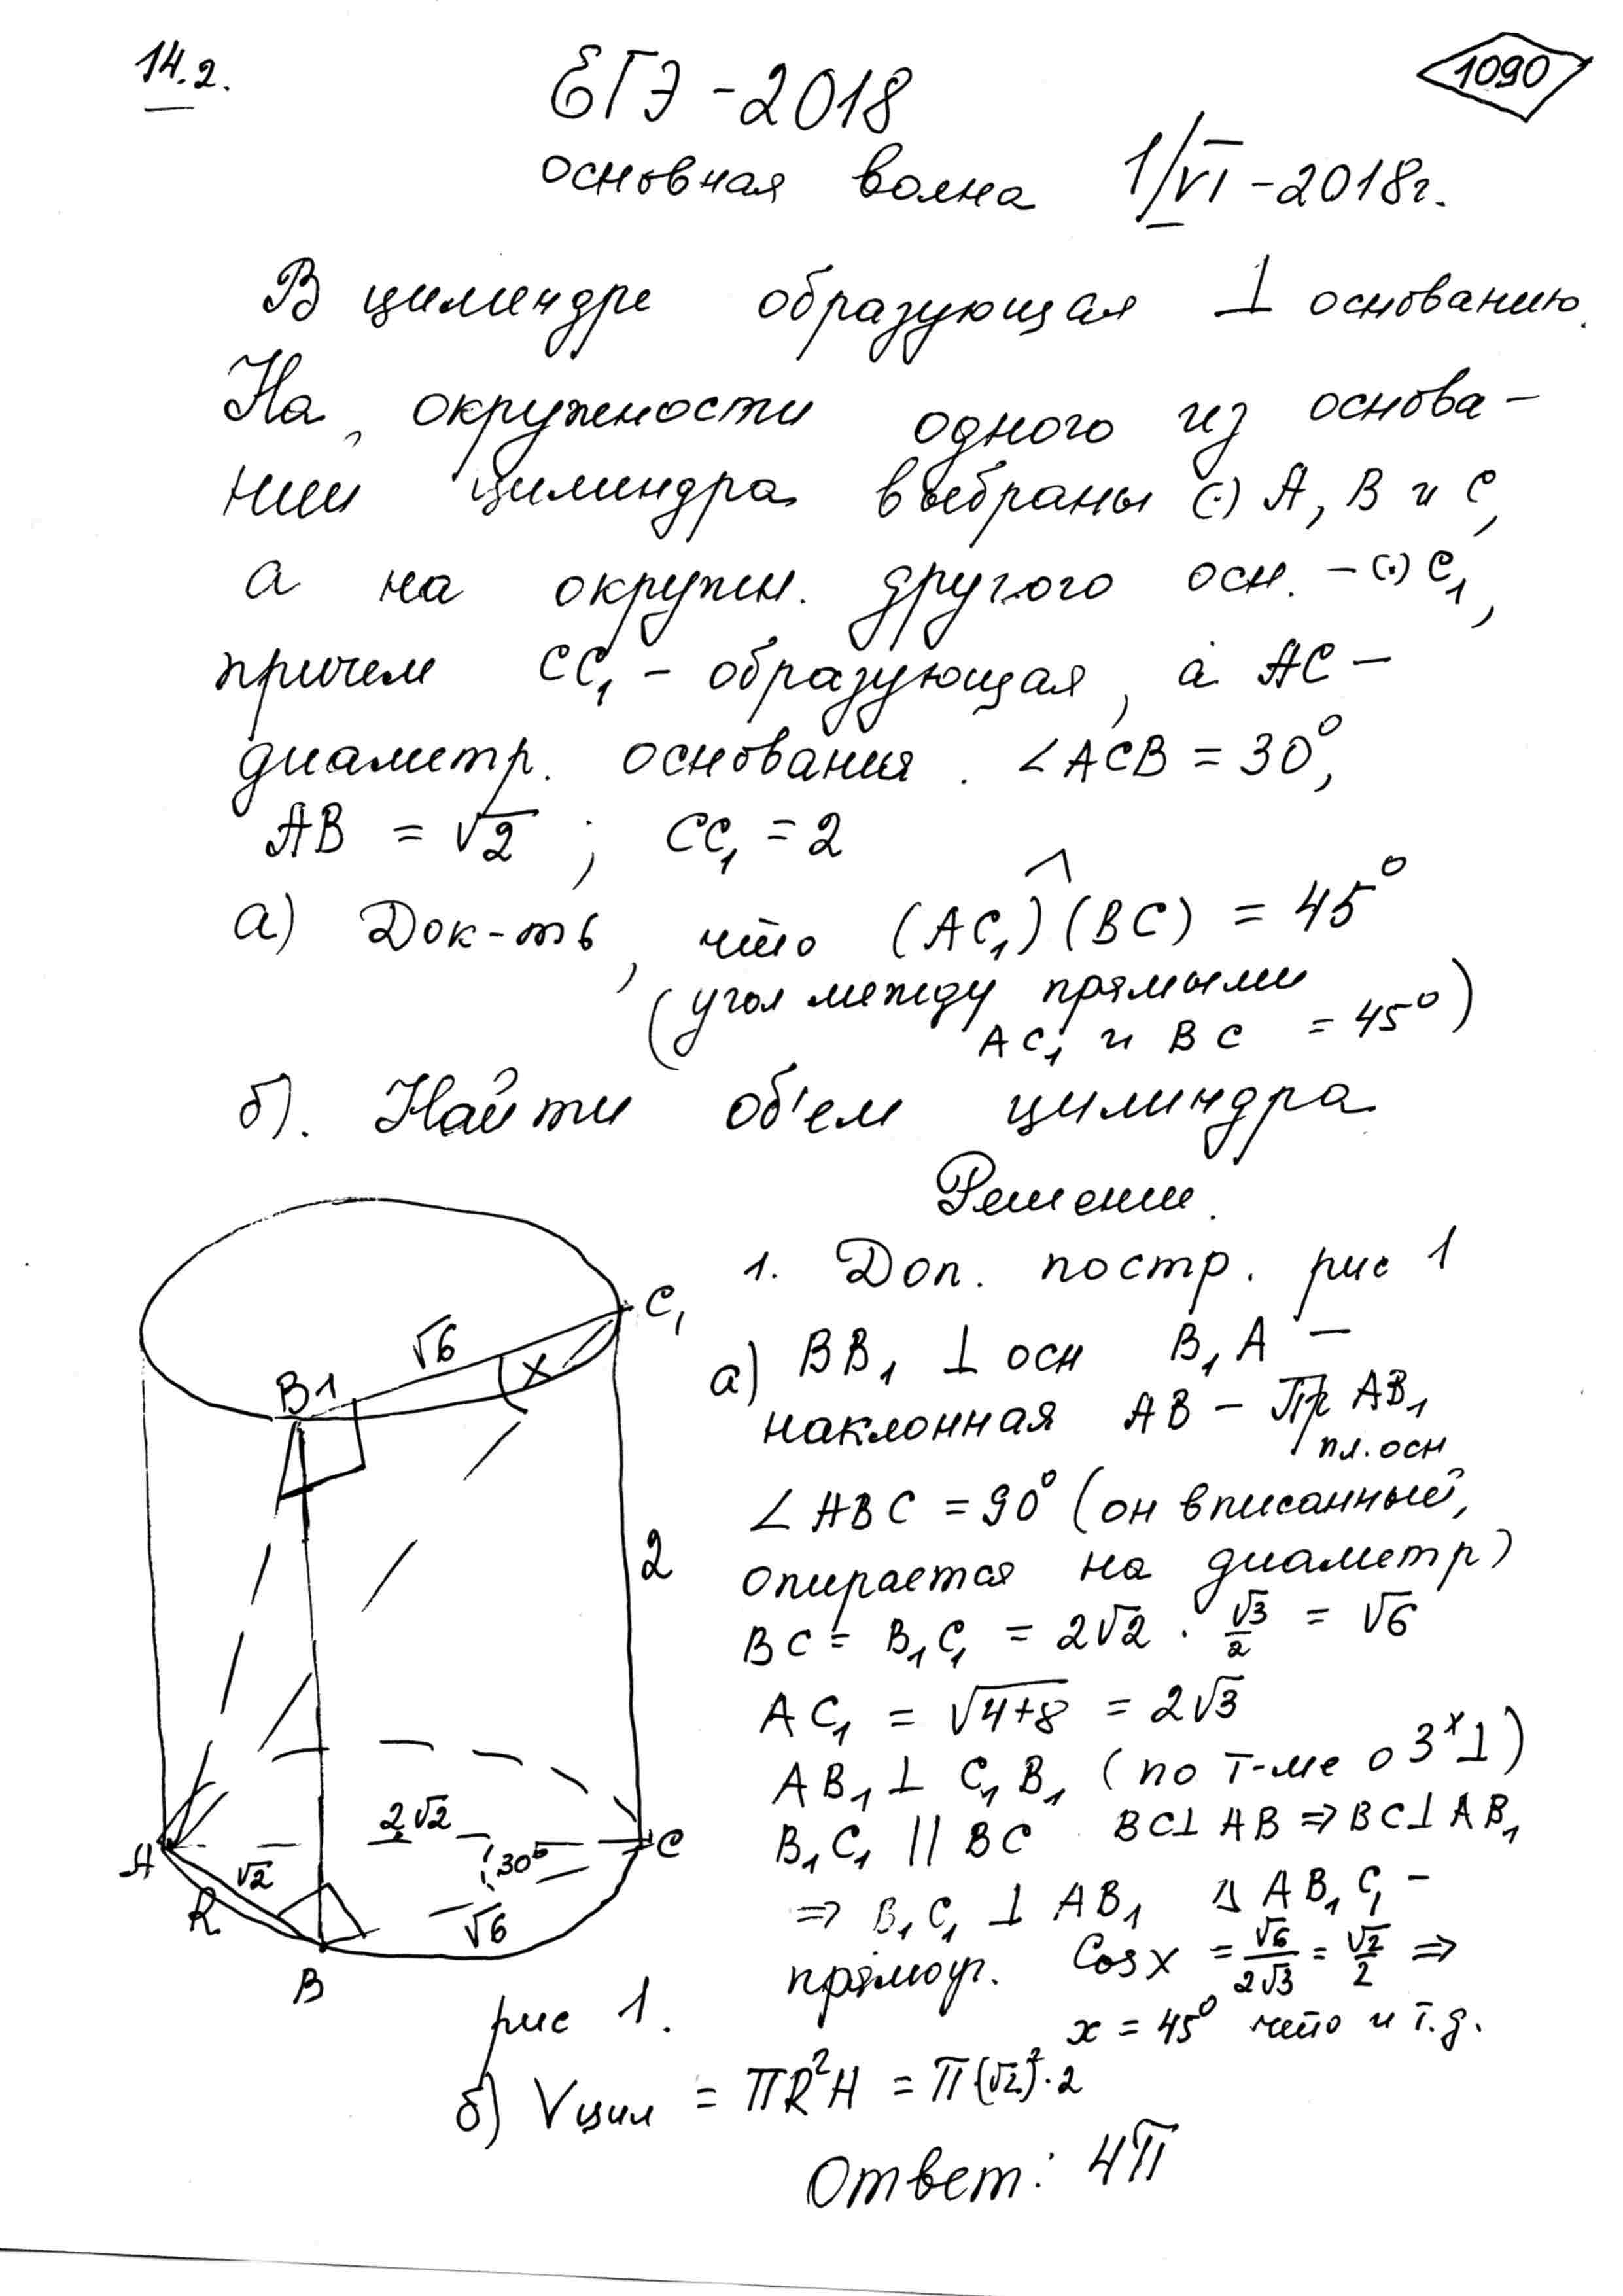 14.2.
1090
ЕГЭ-2018
основная волна 1/VI-2018г.
В цилиндре образующая ⊥ основанию.
На окружности одного из основа-
ний цилиндра выбраны (·) A, B и C,
а на окружн. другого осн. - (·) C₁,
причем CC₁ - образующая, а AC -
диаметр. основания. ∠ACB = 30°,
AB = √2 ; CC₁ = 2
а) Док-ть, что (AC₁)^(BC) = 45°
(угол между прямыми
AC₁ и BC = 45°)
б). Найти об'ем цилиндра
Решение.
1. Доп. постр. рис 1
а) BB₁ ⊥ осн B₁A -
наклонная AB - Пр AB₁
пл. осн
∠ABC = 90° (он вписанный,
опирается на диаметр)
BC = B₁C₁ = 2√2 · √3/2 = √6
AC₁ = √4+8 = 2√3
AB₁ ⊥ C₁B₁ (по т-ме о 3ˣ⊥)
B₁C₁ || BC BC⊥AB ⇒ BC⊥AB₁
⇒ B₁C₁ ⊥ AB₁ Δ AB₁C₁ -
прямоуг. Cos x = √6/2√3 = √2/2 ⇒
x = 45° что и т.д.
C₁
√6
x
B1
2
2√2
A
√2
30°
C
R
√6
B
рис 1.
б) Vцил = πR²H = π(√2)²·2
Ответ: 4π